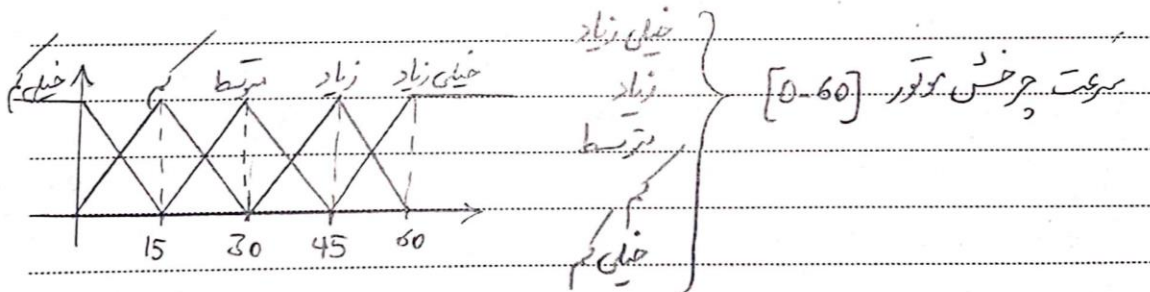 سرعت چرخش موتور [0-60]
خیلی زیاد
زیاد
متوسط
کم
خیلی کم
خیلی کم کم متوسط زیاد خیلی زیاد
15 30 45 60